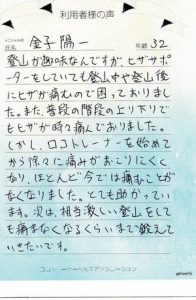 利用者様の声
氏名 金子陽一 年齢 32
登山が趣味なんですが、ヒザサポ
ーターをしていても登山中や登山後
にヒザが痛むので困っておりまし
た。また、普段の階段の上り下りで
もヒザが時々痛んでおりました。
しかし、ロコトレーナーを始めて
から徐々に痛みがおこりにくく
なり、ほとんど今では痛むことが
なくなりました。とても助かってい
ます。次は、相当激しい登山をして
も痛まなくなるくらいまで鍛えて
いきたいです。